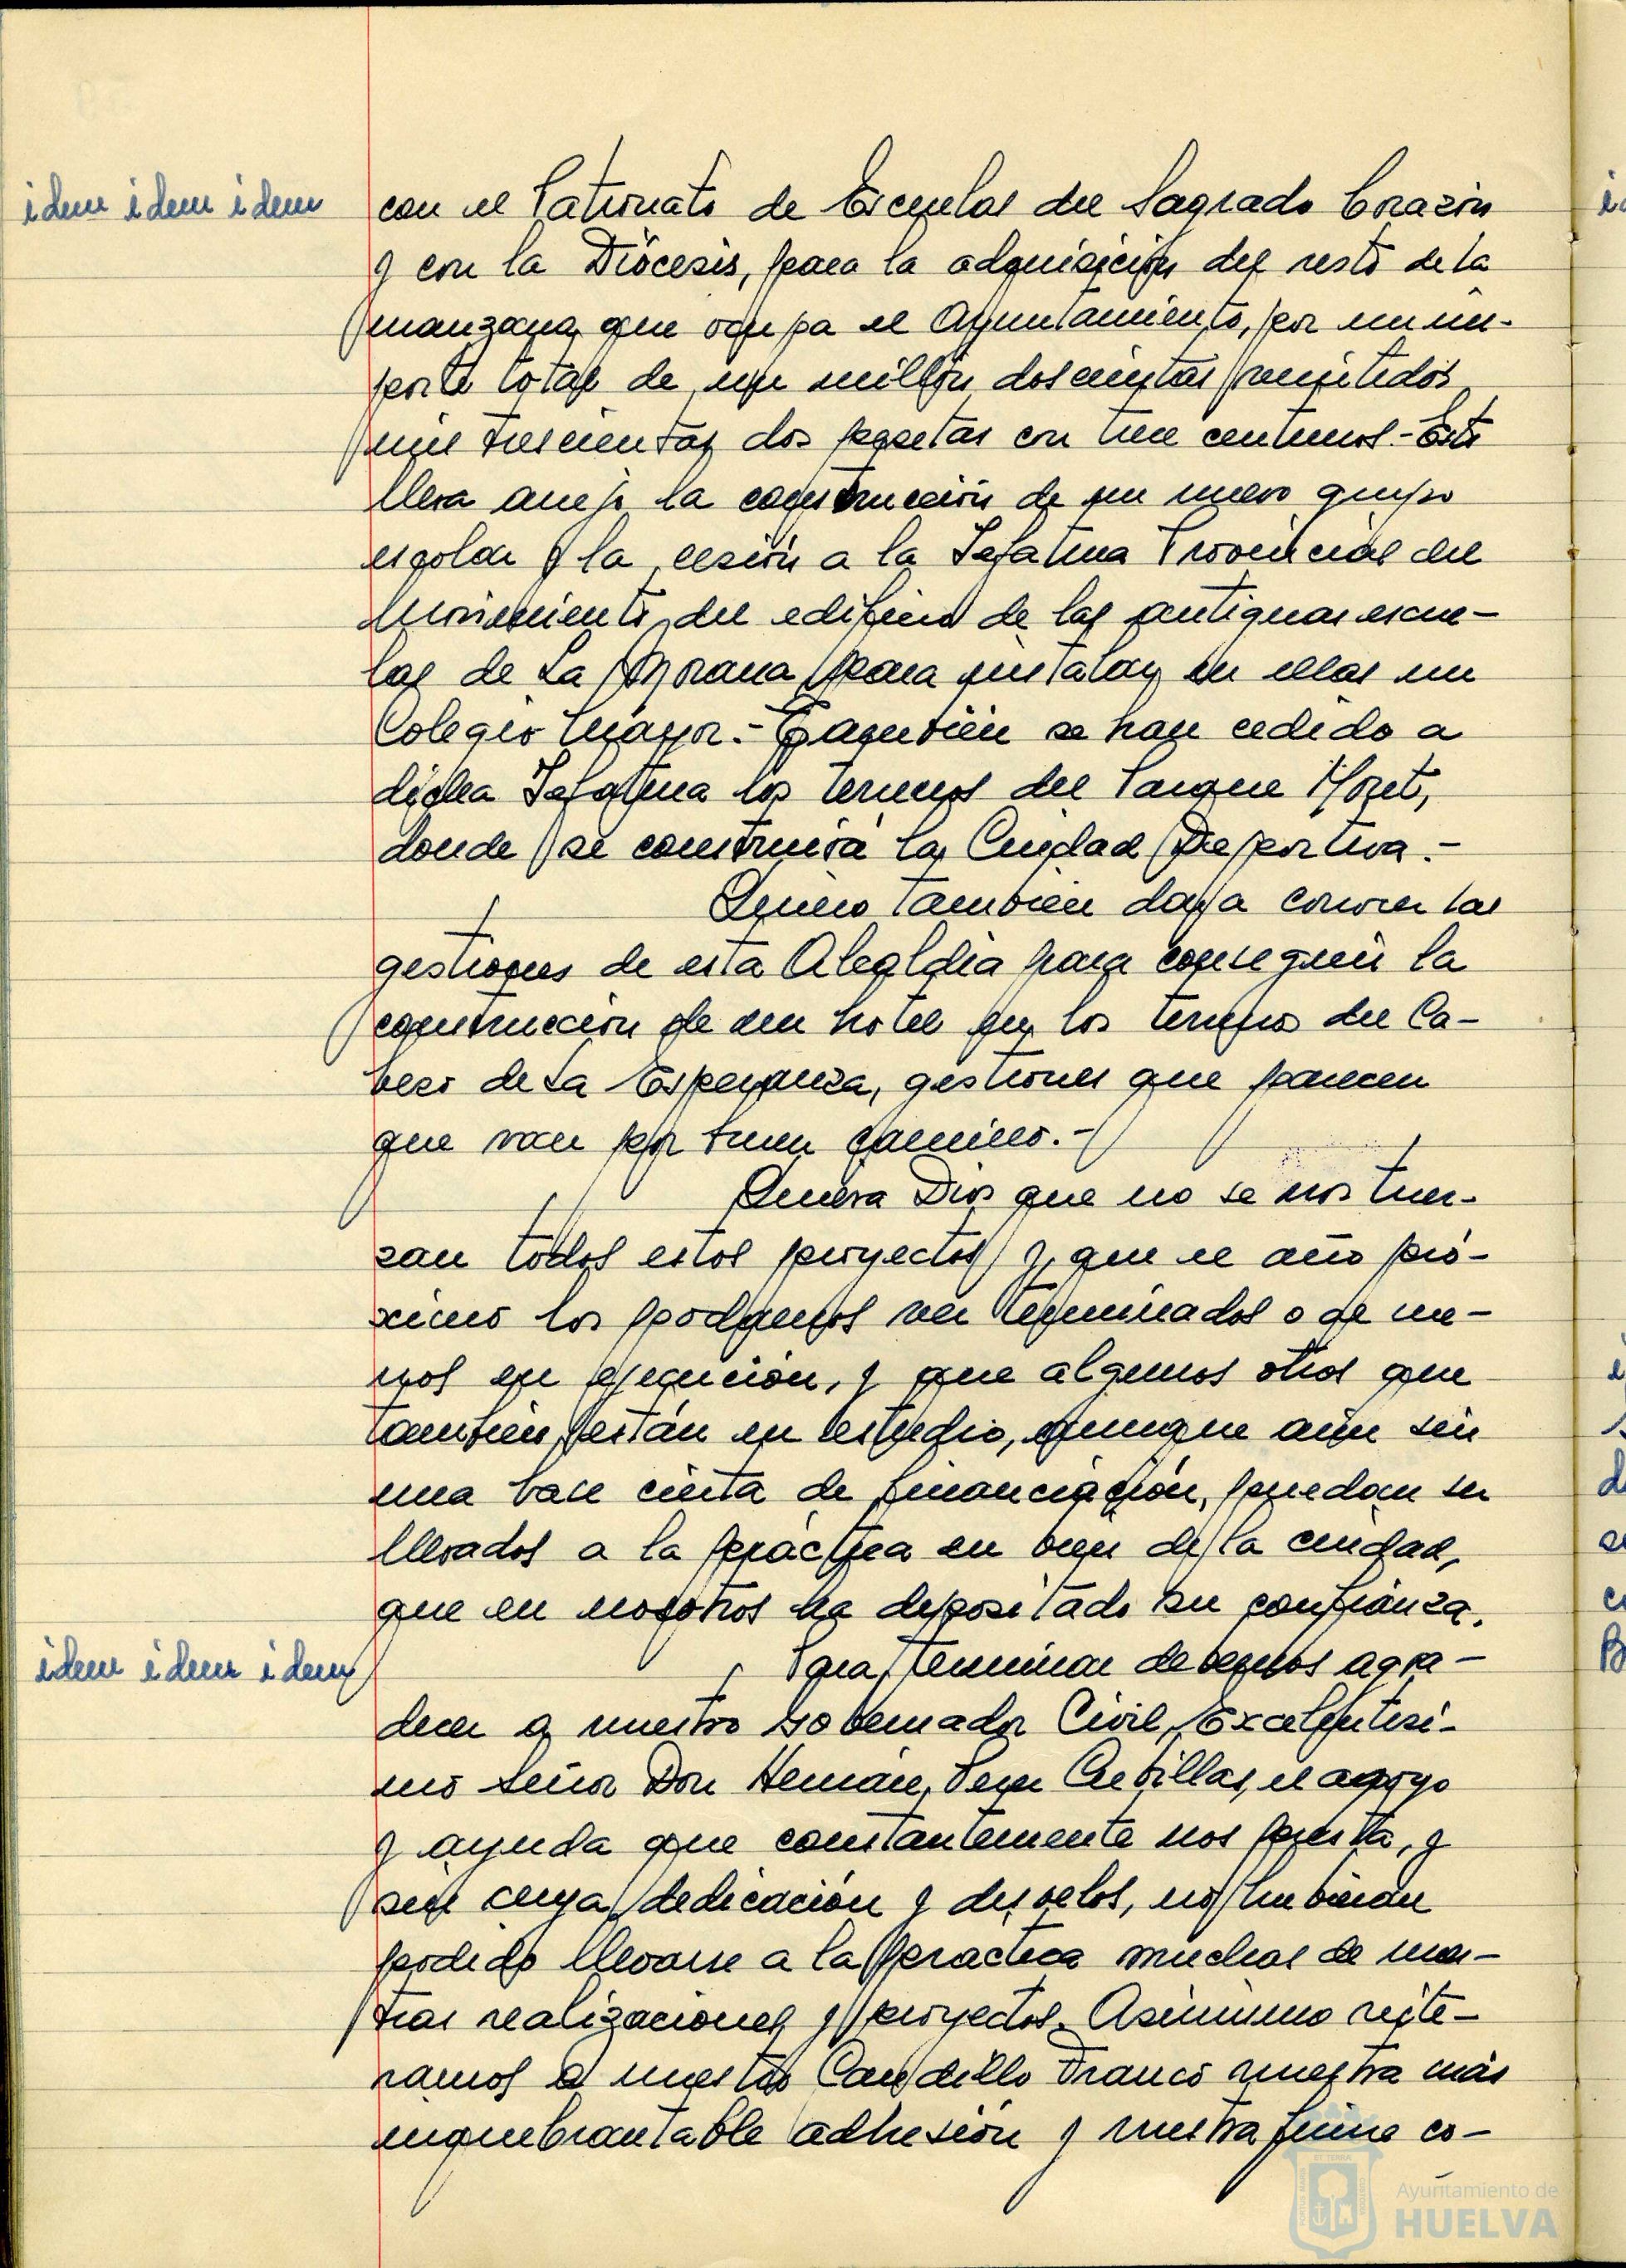 idem idem idem
con el Patronato de Escuelas del Sagrado Corazón
y con la Diócesis, para la adquisición del resto de la
manzana que ocupa el Ayuntamiento, por un im-
porte total de un millón doscientas veintidós
mil trescientas dos pesetas con trece centimos.- Esto
lleva anejo la construcción de un nuevo grupo
escolar y la cesión a la Jefatura Provincial del
Movimiento, del edificio de las antiguas escue-
las de La Morana para instalar en ellas un
Colegio Mayor.- También se han cedido a
dicha Jefatura los terrenos del Parque Moret,
donde se construirá la Ciudad Deportiva.-
Quiero también dar a conocer las
gestiones de esta Alcaldía para conseguir la
construcción de un hotel en los terrenos del Ca-
bezo de La Esperanza, gestiones que parecen
que van por buen camino.-
Quiera Dios que no se nos tuer-
zan todos estos proyectos y que el año pró-
ximo los podamos ver terminados o al me-
nos en ejecución, y que algunos otros que
también están en estudio, aunque aún sin
una base cierta de financiación, puedan ser
llevados a la práctica en bien de la ciudad,
que en nosotros ha depositado su confianza.
idem idem idem
Para terminar debemos agra-
decer a nuestro Gobernador Civil, Excelentísi-
mo Señor Don Hernán Perez Cubillas, el apoyo
y ayuda que constantemente nos presta, y
sin cuya dedicación y desvelos, no hubieran
podido llevarse a la practica muchas de nues-
tras realizaciones y proyectos. Asimismo reite-
ramos a nuestro Caudillo Franco nuestra más
inquebrantable adhesión y nuestra firme co-
Ayuntamiento de
HUELVA